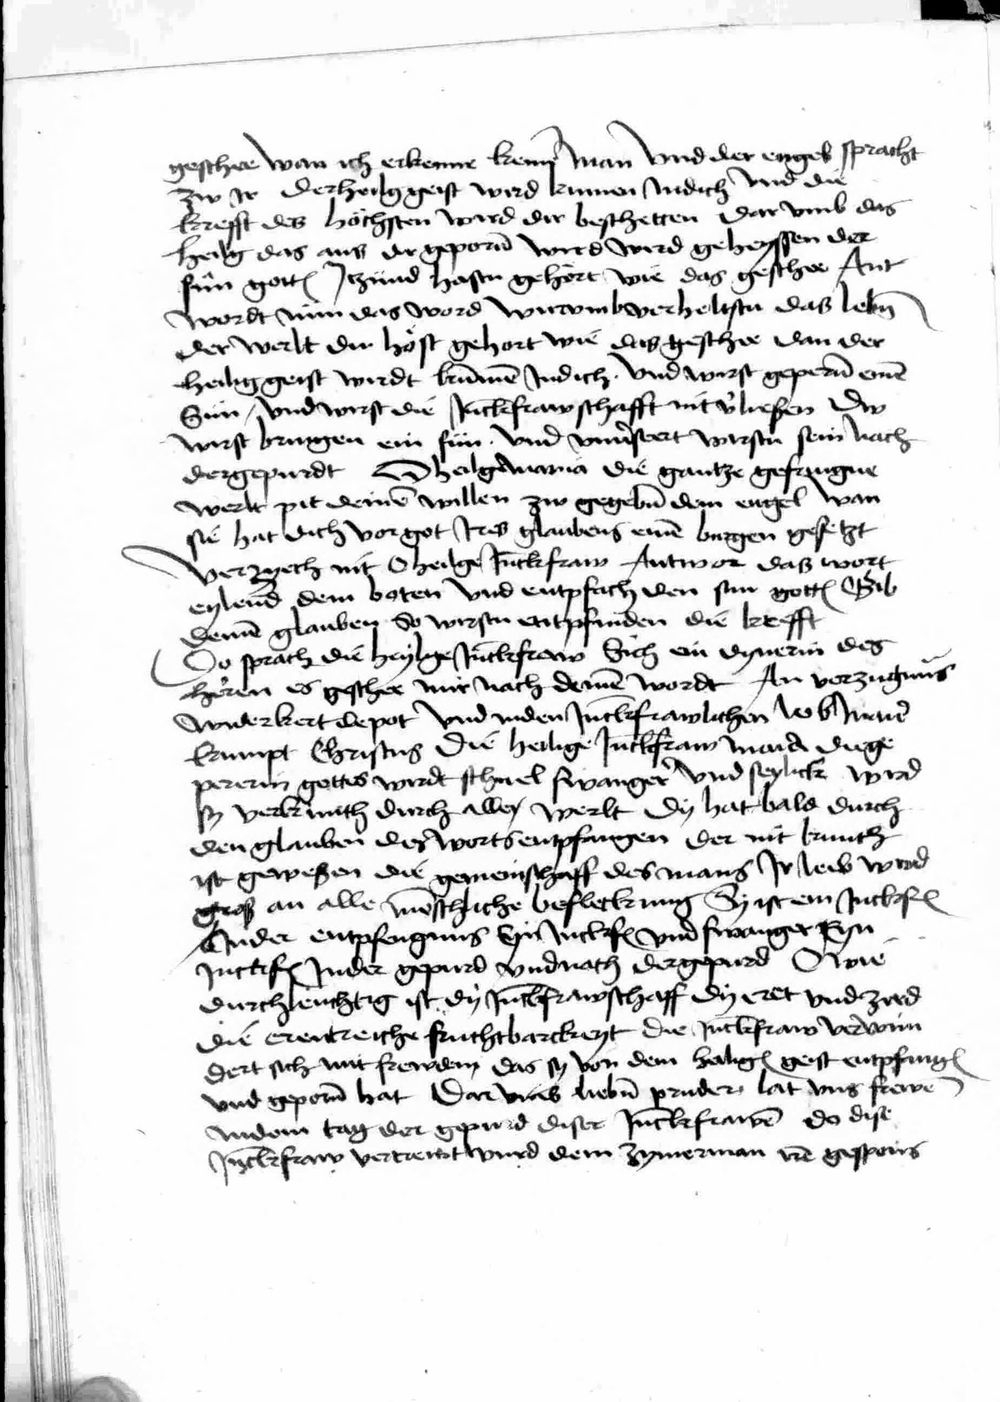 geschee wan ich erkenne kein man Und der engel spracht
zw ir Der heilig geist wird kumen indich Und die
krefft des höchsten wird dir beschetten Dar vmb das
heilig das aus dir geporn̄ wird wird geheyssen der
sün gottes Itzünd hastu gehört wie das geschee Ant
wordt nun das word warvmb verheltstu das lebn̄
der werlt du höst gehort wie das geschee dan der
heilig geist wirdt kum̄en Jndich. Vnd wirst gepern̄ einē
Sün / Vnd wirst die Junckfrawschafft nit v̓liesen Dw
wirst brungen ein sün. Vnd vnuerseert wirstu sein nach
der gepurdt O heilge maria die gantze gefangne
werlt pit deinē willen zw gegebn̄ dem engel wan
sie hat dich vor got ires glaubens einē burgen gesetzt
Verzyech nit O heilge Junckfraw Antwor das wort
eylend dem boten Vnd entpfach den sun gottes Gib
deinē glauben So wirstu entpfinden die krefft
Do sprach die heylige Junckfraw Sich ein dynerin des
herren es geschee mir nach deinē wordt An verzugnus
widerkert der pot Vnd inden Junckfrawlichen leib marie
kumpt Christus Die heilige Junckfraw maria die ge
pererin gottes wirdt schnel swanger Vnd seylick wird
sy verkunth durch alle werlt Dy hat bald durch
den glauben des worts entpfangen der nit kunth
ist gewesen die gemeinschaff des mans Ir leib wird
groß an alle menschliche befleckung Sy ist ein Junckfr
Inder entpfengnus Ein Junckfr vnd swanger Eyn
Junckfr Inder gepurd vnd nach der gepurd O wie
durchleuchtig ist dy Junckfrawschaff Dy eret vnd zird
die erentreiche fruchtbarckeyt die Junckfraw verwun
dert sich mit frewden das sy von dem heiligen geist entpfangen
vnd geporn̄ hat Dar vmb liebn̄ pruder lat vns frewē
indem tag der gepurd diser Junckfrawē do dise
Junckfraw vertrewt wurd dem zymerman vn̄ gespons